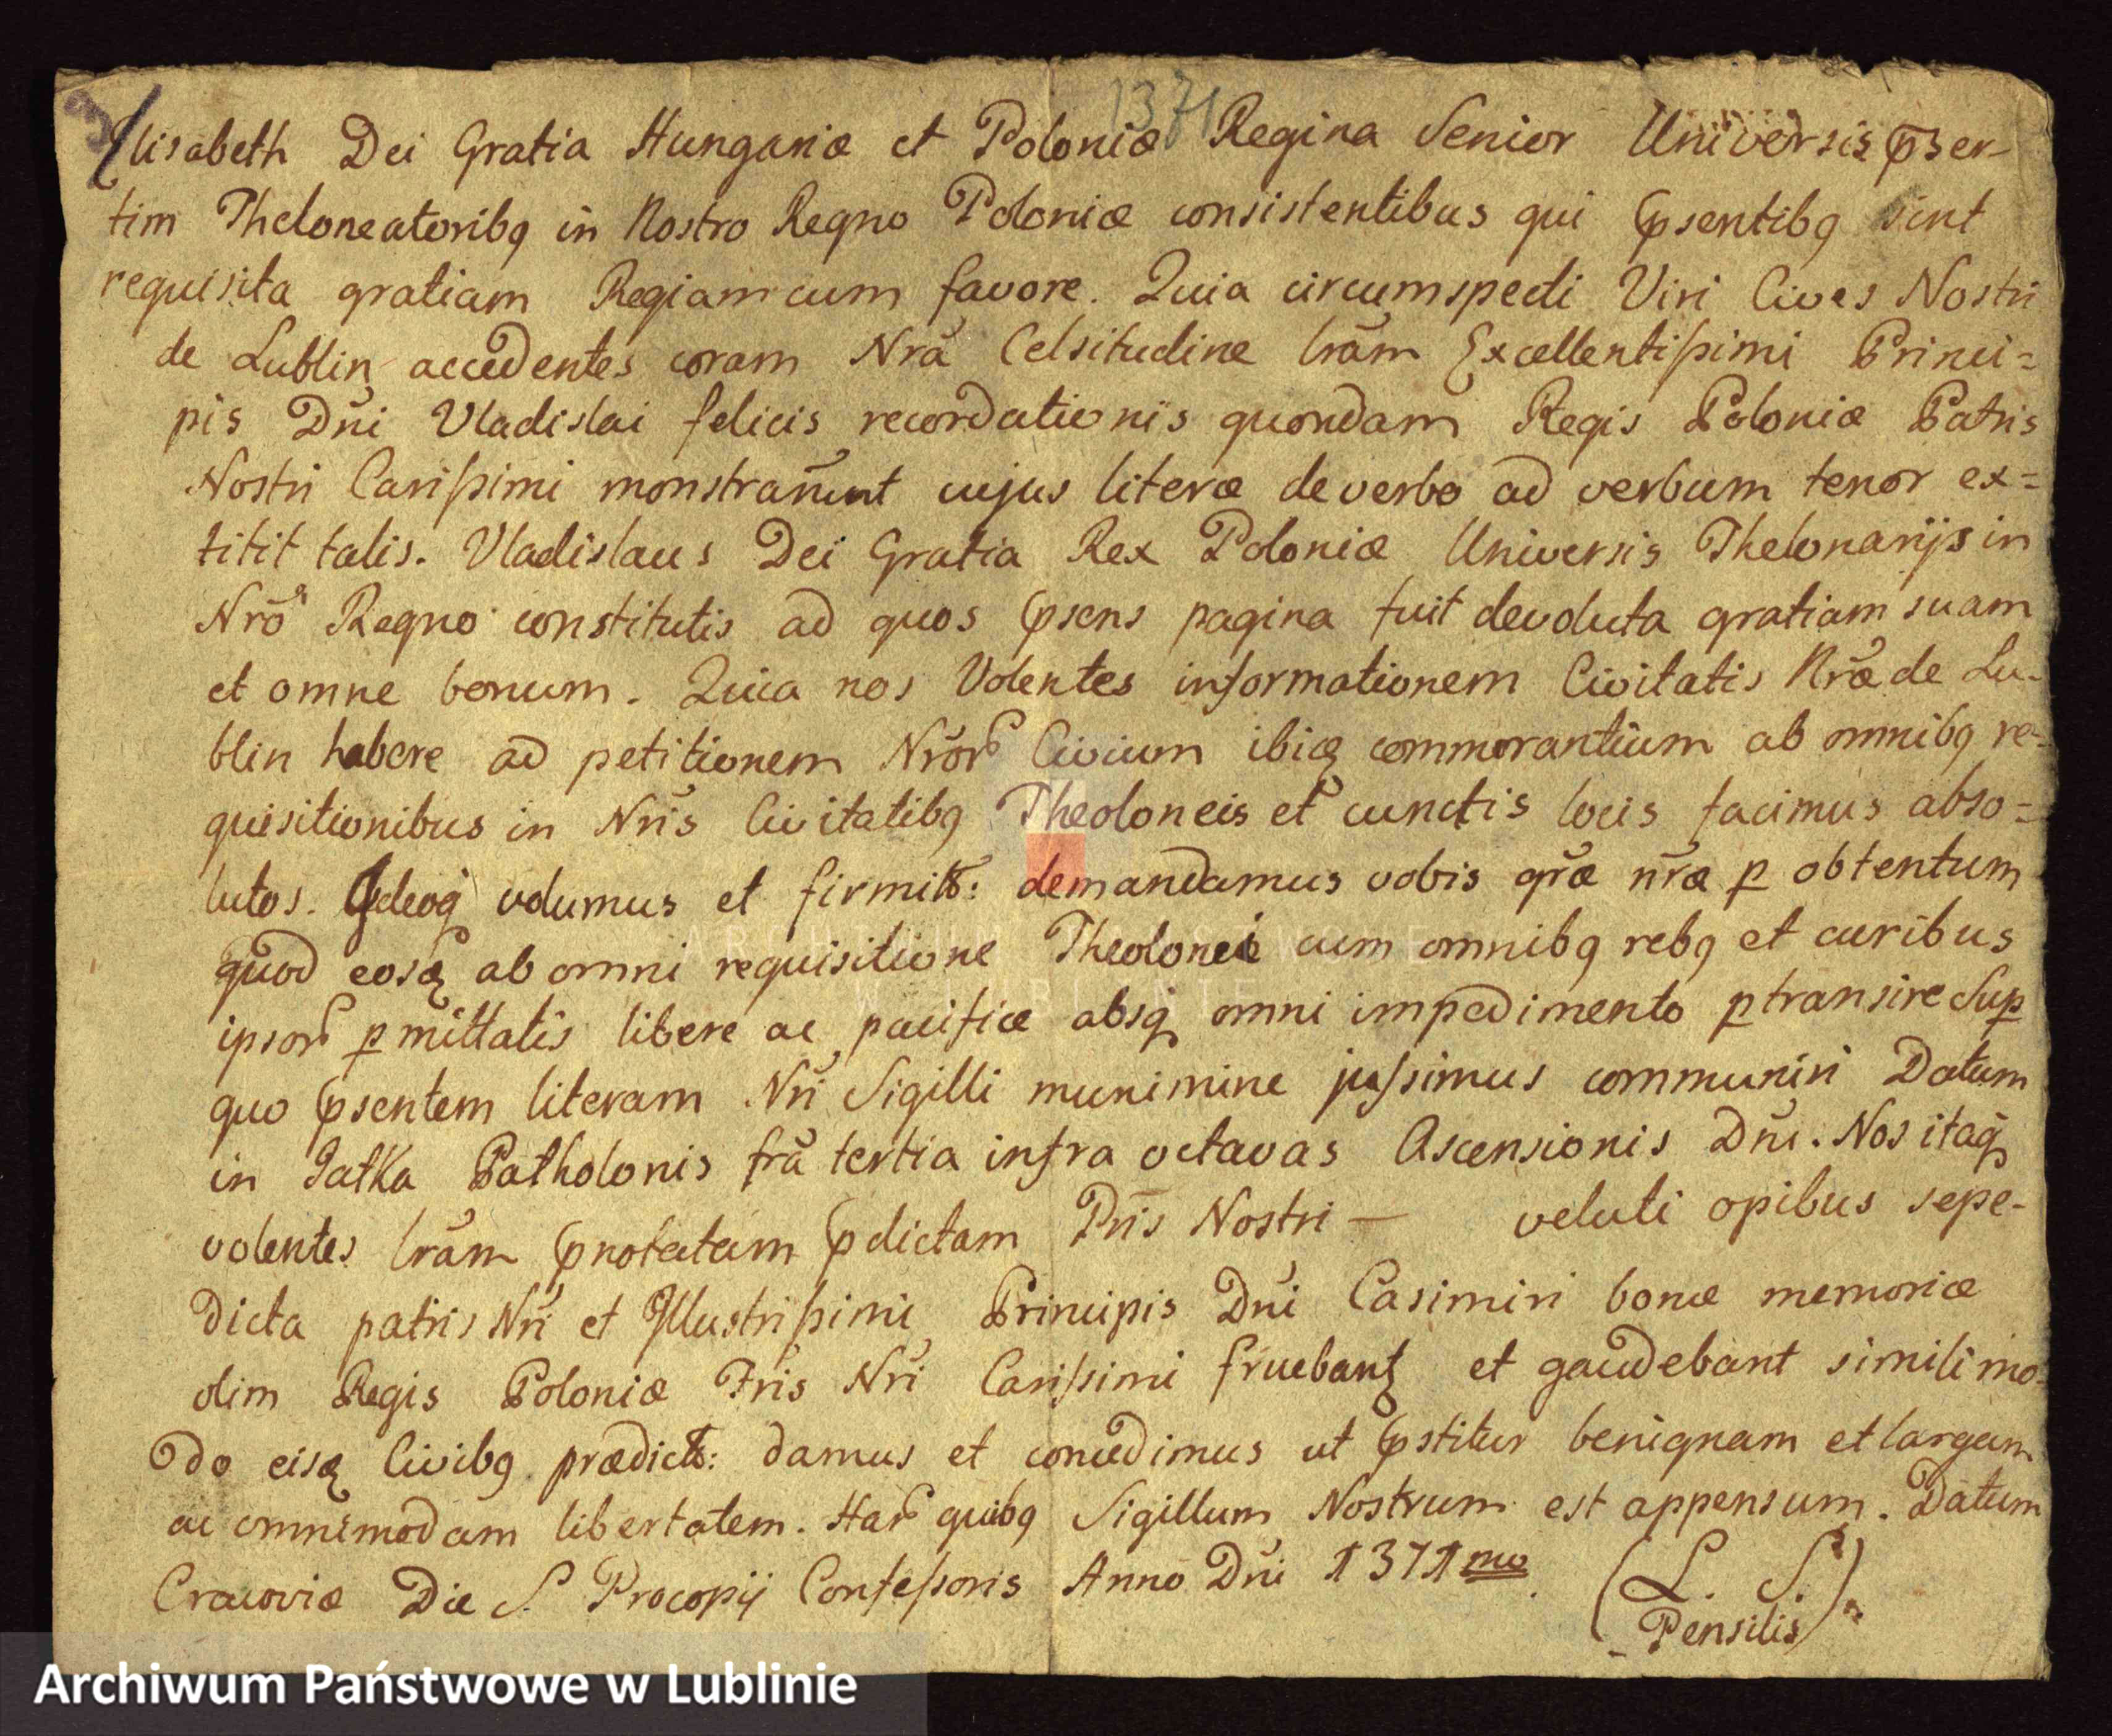 1371
Elisabeth Dei Gratia Hungariæ et Poloniæ Regina Senior Universis p̄ser-
tim Theloneatoribq in Nostro Regno Poloniæ consistentibus qui p̄sentibq sint
requisita gratiam Regiam cum favore. Quia circumspecti Viri Cives Nostri
de Lublin accedentes coram Nrã Celsitudine lrãm Excellentißimi Princi=
pis Dn̄i Vladislai felicis recordationis quondam Regis Poloniæ Patris
Nostri Carißimi monstrarũnt cujus literæ de verbo ad verbum tenor ex=
titit talis. Vladislaus Dei Gratia Rex Poloniæ Universis Thelonarijs in
Nrõ Regno constitutis ad quos p̄sens pagina fuit devoluta gratiam suam
et omne bonum. Quia nos Volentes informationem Civitatis Nræ̃ de Lu-
blin habere ad petitionem Nrõr Civium ibiq commorantium ab omnibq re=
quisitionibus in Nrĩs Civitatibq Theoloneis et cunctis locis facimus abso=
lutos. Ideoq volumus et firmitr: demandamus vobis gr̃æ nr̃æ p obtentum
quod eosq ab omni requisitione Theolonei cum omnibq rebq et curibus
ipsor p mittatis libere ac pacificæ absq omni impedimento ptransire Sup
quo p̄sentem literam Nrĩ Sigilli munimine jußimus communiri Datum
in Jatka Patholonis frã tertia infra octavas Ascensionis Dn̄i. Nos itaq
volentes lrãm p̄notatam p̄dictam Prĩs Nostri — veluti opibus sepe-
dicta patris Nrĩ et Jllustrißimi Principis Dn̄i Casimiri bonæ memoriæ
olim Regis Poloniæ Frĩs Nrĩ Carißimi fruebantʒ et gaudebant simili mo-
do eisq Civibq prædictr: damus et concedimus ut p̄stitur benignam et largam
ac omnimodam libertatem. Har quibq Sigillum Nostrum est appensum. Datum
Cracoviæ Die S. Procopij Confeßoris Anno Dn̄i 1371mo
(L. S.)
Pensilis
ARCHIWUM PAŃSTWOWE
W LUBLINIE
Archiwum Państwowe w Lublinie